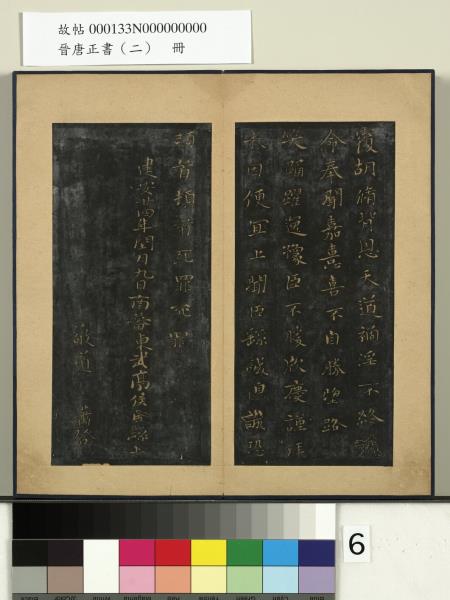 故帖 000133N000000000
晉唐正書（二） 冊
胡脩背恩天道禍淫不終
命奉聞嘉憙喜不自勝望路
笑踊躍逸豫臣不勝欣慶謹拜
因便宜上聞臣繇誠皇誠恐
頓首頓首死罪死罪
建安廿四年閏月九日南蕃東武亭侯臣繇上
6